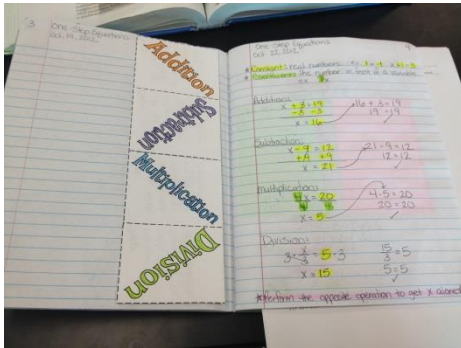 3
One Step Equations
Oct. 19, 2012
Addition
Subtraction
Multiplication
Division
One Step Equations
Oct. 22, 2012
4
* Constant: real numbers
* Coefficient: the number in front of a variable
Addition:
x + 3 = 19
-3 -3
x = 16
16 + 3 = 19
19 = 19
Subtraction:
x - 9 = 12
+9 +9
x = 21
21 - 9 = 12
12 = 12
Multiplication:
4x = 20
4 4
x = 5
4 · 5 = 20
20 = 20
Division:
3 · x/3 = 5 · 3
x = 15
15/3 = 5
5 = 5
*Perform the opposite operation to get x alone!